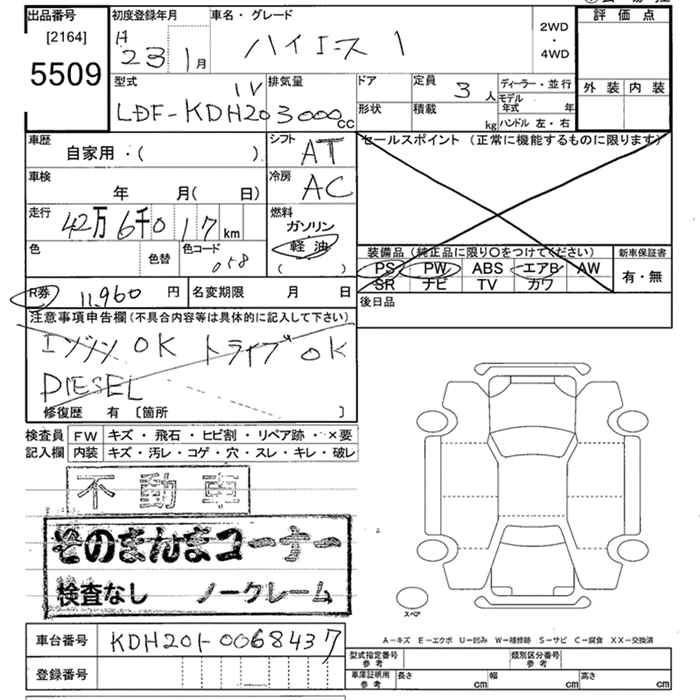 出品番号
[2164]
5509
初度登録年月
H 23 1月
車名・グレード
ハイエース 1
2WD
・
4WD
評価点
外装 内装
型式
LDF-KDH20 1V
排気量
3000cc
ドア
形状
定員
3人
積載
kg
ディーラー・並行
モデル年式 年
ハンドル 左・右
車歴
自家用・( )
シフト
AT
セールスポイント(正常に機能するものに限ります)
車検
年 月( 日)
冷房
AC
走行
42万6千017km
燃料
ガソリン
軽油
( )
色
色替
色コード
058
装備品(純正品に限り〇をつけてください)
新車保証書
PS PW ABS エアB AW
SR ナビ TV カワ
有・無
R券 11,960 円
名変期限 月 日
後日品
注意事項申告欄(不具合内容等は具体的に記入して下さい)
エンジン OK ドライブ OK
DIESEL
修復歴 有 〔箇所 〕
検査員 FW キズ・飛石・ヒビ割・リペア跡・×要
記入欄 内装 キズ・汚レ・コゲ・穴・スレ・キレ・破レ
不動車
そのまんまコーナー
検査なし ノークレーム
スペア
車台番号 KDH201-0068437
登録番号
A-キズ E-エクボ U-凹み W-補修跡 S-サビ C-腐食 XX-交換済
型式指定番号
参考
類別区分番号
参考
車庫証明用
参考
長さ cm 幅 cm 高さ cm